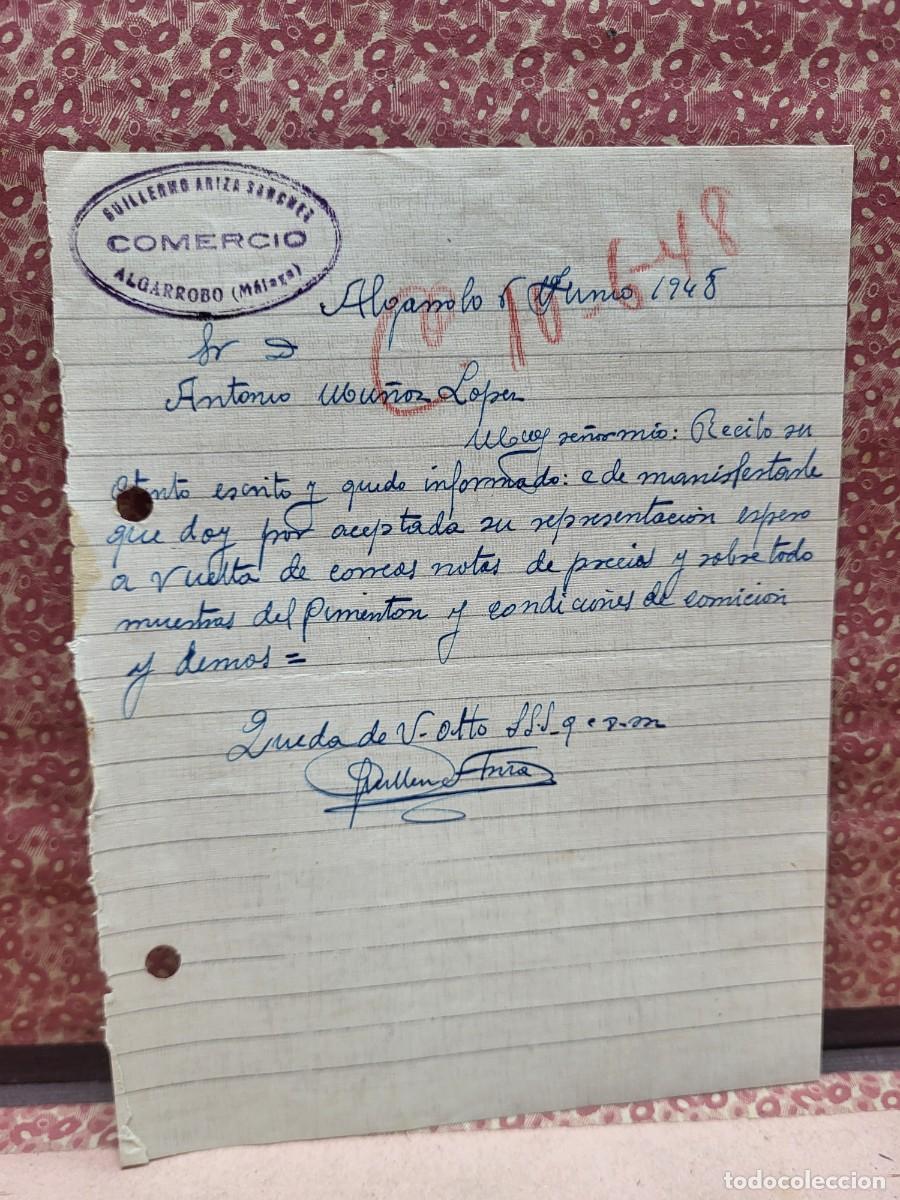 GUILLERMO ARIZA SANCHEZ
COMERCIO
ALGARROBO (Málaga)
Algarrobo 5 Junio 1948
10-6-48
Sr D
Antonio Muñoz Lopez
Muy señor mio: Recibo su
atento escrito y quedo informado: e de manisfestarle
que doy por aceptada su representación espero
a vuelta de correos notas de precios y sobre todo
muestras del Pimenton y condiciones de comición
y demas =
Queda de V. Atto S.S.S. q e s m
Guillermo Ariza
todocoleccion